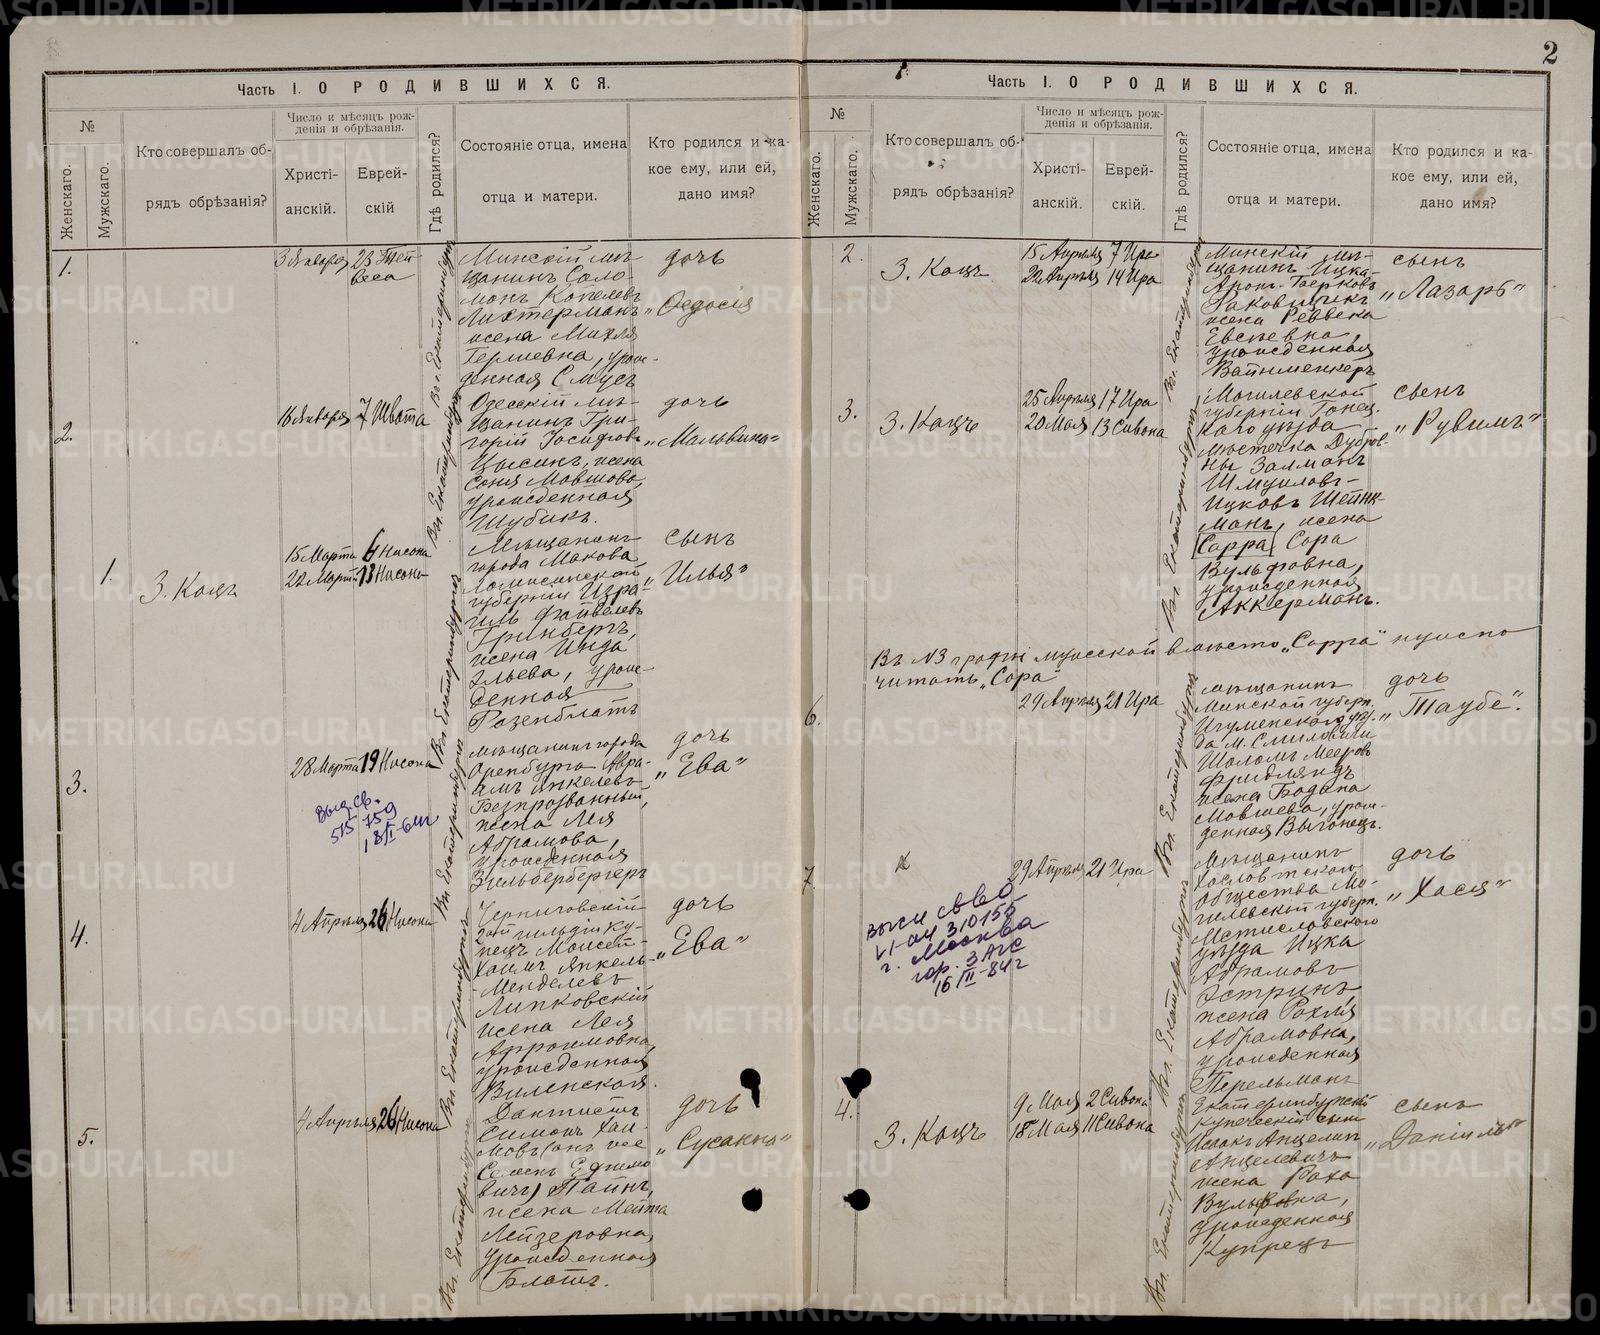 METRIKI.GASO-URAL.RU
2
Часть I. О РОДИВШИХСЯ.
№
Женскаго.
Мужскаго.
Кто совершалъ об-
рядъ обрѣзанія?
Число и мѣсяцъ рож-
денія и обрѣзанія.
Христі-
анскій.
Еврей-
скій
Гдѣ родился?
Состояніе отца, имена
отца и матери.
Кто родился и ка-
кое ему, или ей,
дано имя?
1.
3 Января
23 Тей
веса
Въ г. Екатеринбургѣ
Минскій мѣ-
щанинъ Соло-
монъ Копелевъ
Лихтерманъ
жена Михля
Гершевна, урож-
денная Смусъ
дочь
„Ѳедосія
2.
16 Января
7 Швата
Въ г. Екатеринбургѣ
Одесскій мѣ-
щанинъ Гри-
горій Іосифовъ
Цысинъ, жена
Соня Мовшова,
урожденная
Шубикъ.
дочь
„Мальвина“
1.
З. Кацъ
15 Марта 6 Нисона
22 Марта 13 Нисона
Въ г. Екатеринбургѣ
Мѣщанинъ
города Макова
Ломжинской
губерніи Изра-
иль Файвелевъ
Гринбергъ,
жена Инда
Эльева, урож-
денная
Розенблатъ
сынъ
„Илья“
3.
28 Марта 19 Нисона
Выд. св.
515759
18/II-61г
Въ г. Екатеринбургѣ
мѣщанинъ города
Оренбурга Авра-
амъ Янкелевъ
Безпрозванный,
жена Лея
Абрамова,
урожденная
Зильбербергеръ
дочь
„Ева“
4.
4 Апрѣля 26 Нисона
Въ г. Екатеринбургѣ
Черниговскій
2ой гильдіи ку-
пецъ Моисей-
Хаимъ Янкель-
Менделевъ
Липковскій
жена Лея
Афроимовна,
урожденная
Виленская.
дочь
„Ева“
5.
4 Апрѣля 26 Нисона
Въ г. Екатеринбургѣ
Дантистъ
Симонъ Хаи-
мовъ (онъ же
Семенъ Ефимо
вичъ) Пайнъ,
жена Мейта
Лейзеровна,
урожденная
Блатъ.
дочь
„Сусанна“
Часть I. О РОДИВШИХСЯ.
№
Женскаго.
Мужскаго.
Кто совершалъ об-
рядъ обрѣзанія?
Число и мѣсяцъ рож-
денія и обрѣзанія.
Христі-
анскій.
Еврей-
скій.
Гдѣ родился?
Состояніе отца, имена
отца и матери.
Кто родился и ка-
кое ему, или ей,
дано имя?
2.
З. Кацъ
15 Апрѣля 7 Ира
22 Апрѣля 14 Ира
Въ г. Екатеринбургѣ
Минскій мѣ-
щанинъ Ицка-
Аронъ-Берковъ
Раковщикъ
жена Реввека
Евсѣевна,
урожденная
Вайнменкеръ
сынъ
„Лазарь“
3.
З. Кацъ
25 Апрѣля 17 Ира
20 Мая 13 Сивона
Въ г. Екатеринбургѣ
Могилевской
губерніи Горец-
каго уѣзда
мѣстечка Дубров-
ны Залманъ
Шмуиловъ-
Ицковъ Шейнк-
манъ, жена
(Сарра) Сора
Вульфовна,
урожденная
Аккерманъ.
сынъ
„Рувимъ“
Въ №3 графѣ мужской вмѣсто „Сарра“ нужно
читать „Сора“
6.
29 Апрѣля 21 Ира
Въ г. Екатеринбургѣ
мѣщанинъ
Минской губерн.
Игуменскаго уѣз-
да м. Смиловичи
Шоломъ Мееровъ
Фридляндъ
жена Бодана
Мовшева, урож-
денная Выгонецъ.
дочь
„Таубе“.
7
29 Апрѣля 21 Ира
г. Москва
16/II-84г
Въ г. Екатеринбургѣ
Мѣщанинъ
Хословтскаго
общества Мо-
гилевской губерн.
Мстиславскаго
уѣзда Ицка
Абрамовъ
Эстринъ,
жена Рохля
Абрамовна,
урожденная
Перельманъ
дочь
„Хася“
4.
З. Кацъ
9 Мая 2 Сивона
18 Мая 11 Сивона
Въ г. Екатеринбургѣ
Екатеринбургскій
купеческій сынъ
Исаакъ Анцелинъ
Анцелевичъ
жена Роха
Вульфовна,
урожденная
Купрецъ
сынъ
„Даніилъ“